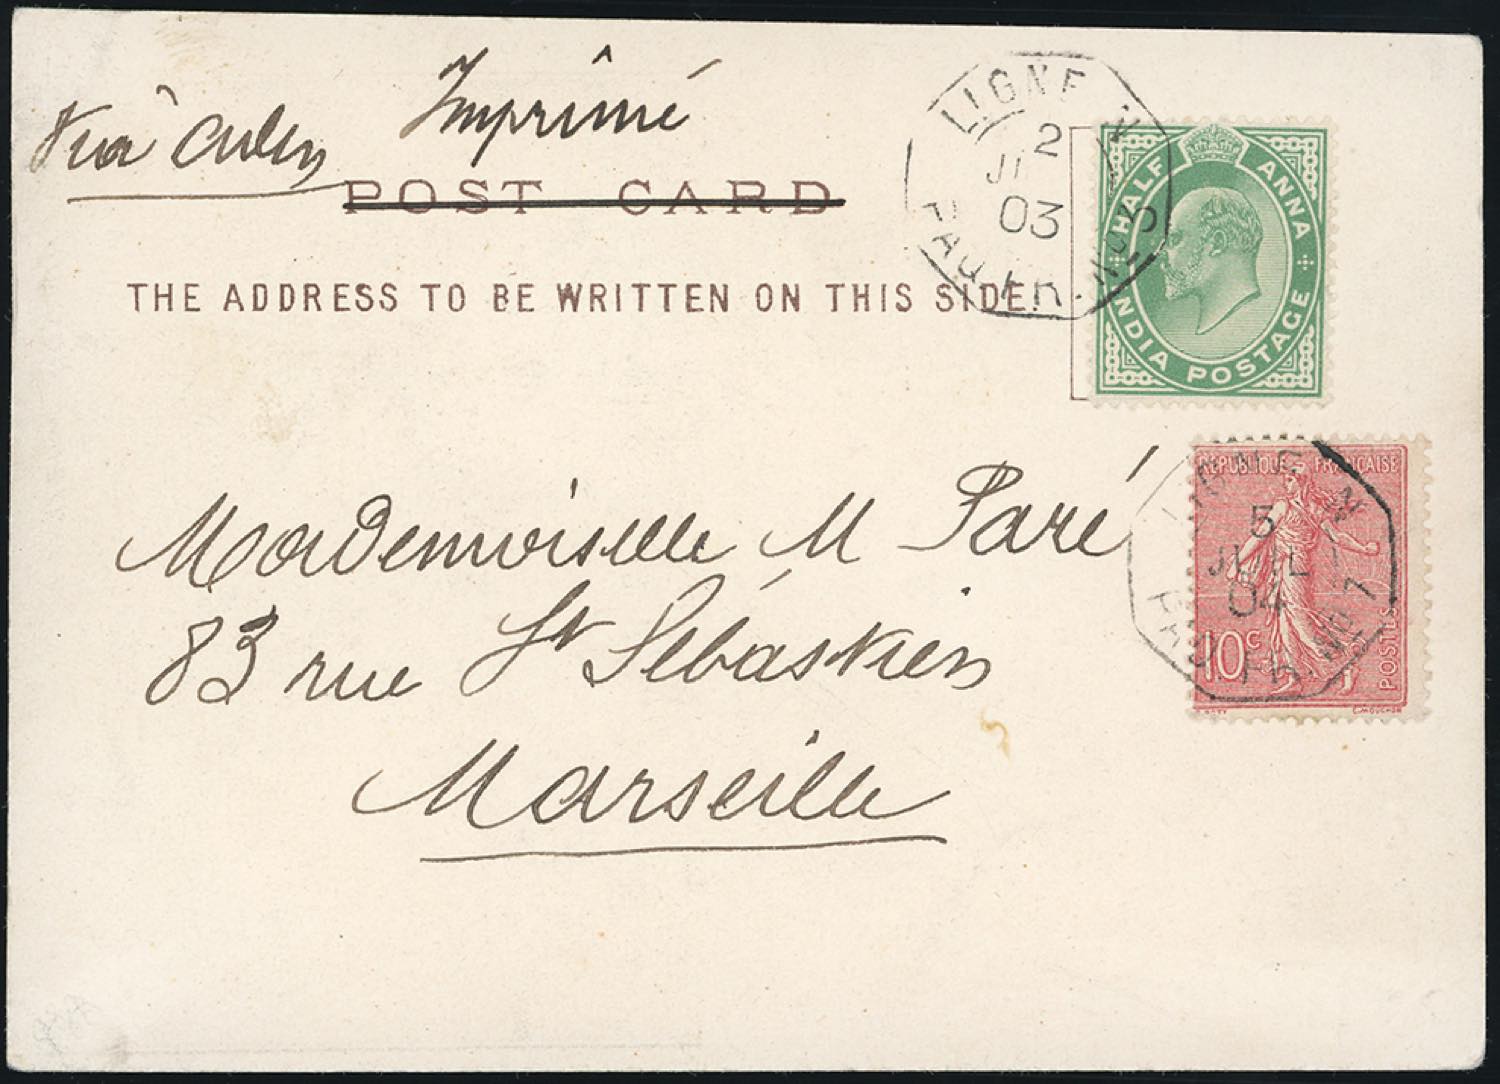 Via Aden
Imprimé
POST CARD
THE ADDRESS TO BE WRITTEN ON THIS SIDE.
LIGNE N
2
03
PAQ. FR. No 5
HALF ANNA
INDIA POSTAGE
Mademoiselle M Paré
83 rue St Sébastien
Marseille
REPUBLIQUE FRANÇAISE
10c
POSTES
L.MOUCHON
LIGNE N
5
JUIL
04
PAQ. FR. No 7